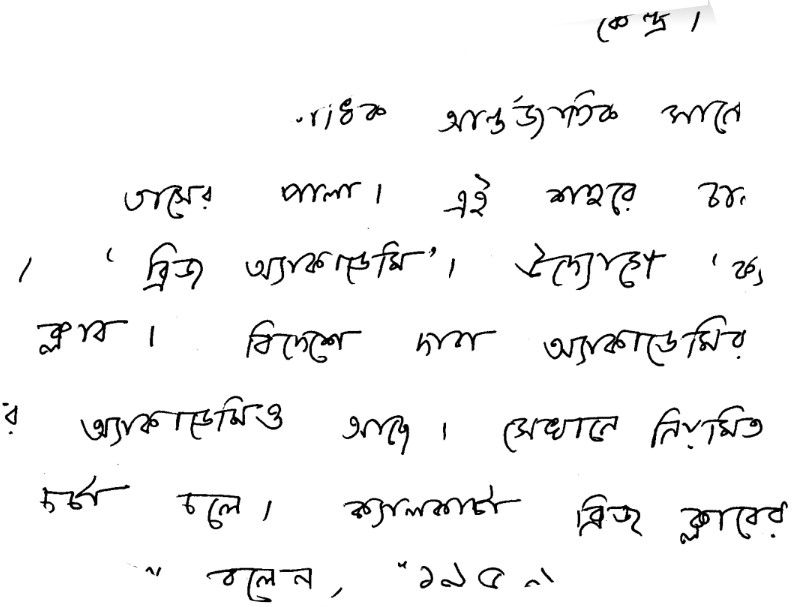 কেন্দ্র।
আর্ন্তজাতিক মানে
তাসের পালা। এই শহরে
। 'ব্রিজ অ্যাকাডেমি'। উদ্যোগে
ক্লাব। বিদেশে দাবা অ্যাকাডেমির
র অ্যাকাডেমিও আছে। সেখানে নিয়মিত
চর্চা চলে। ক্যালকাটা ব্রিজ ক্লাবের
" বলেন,